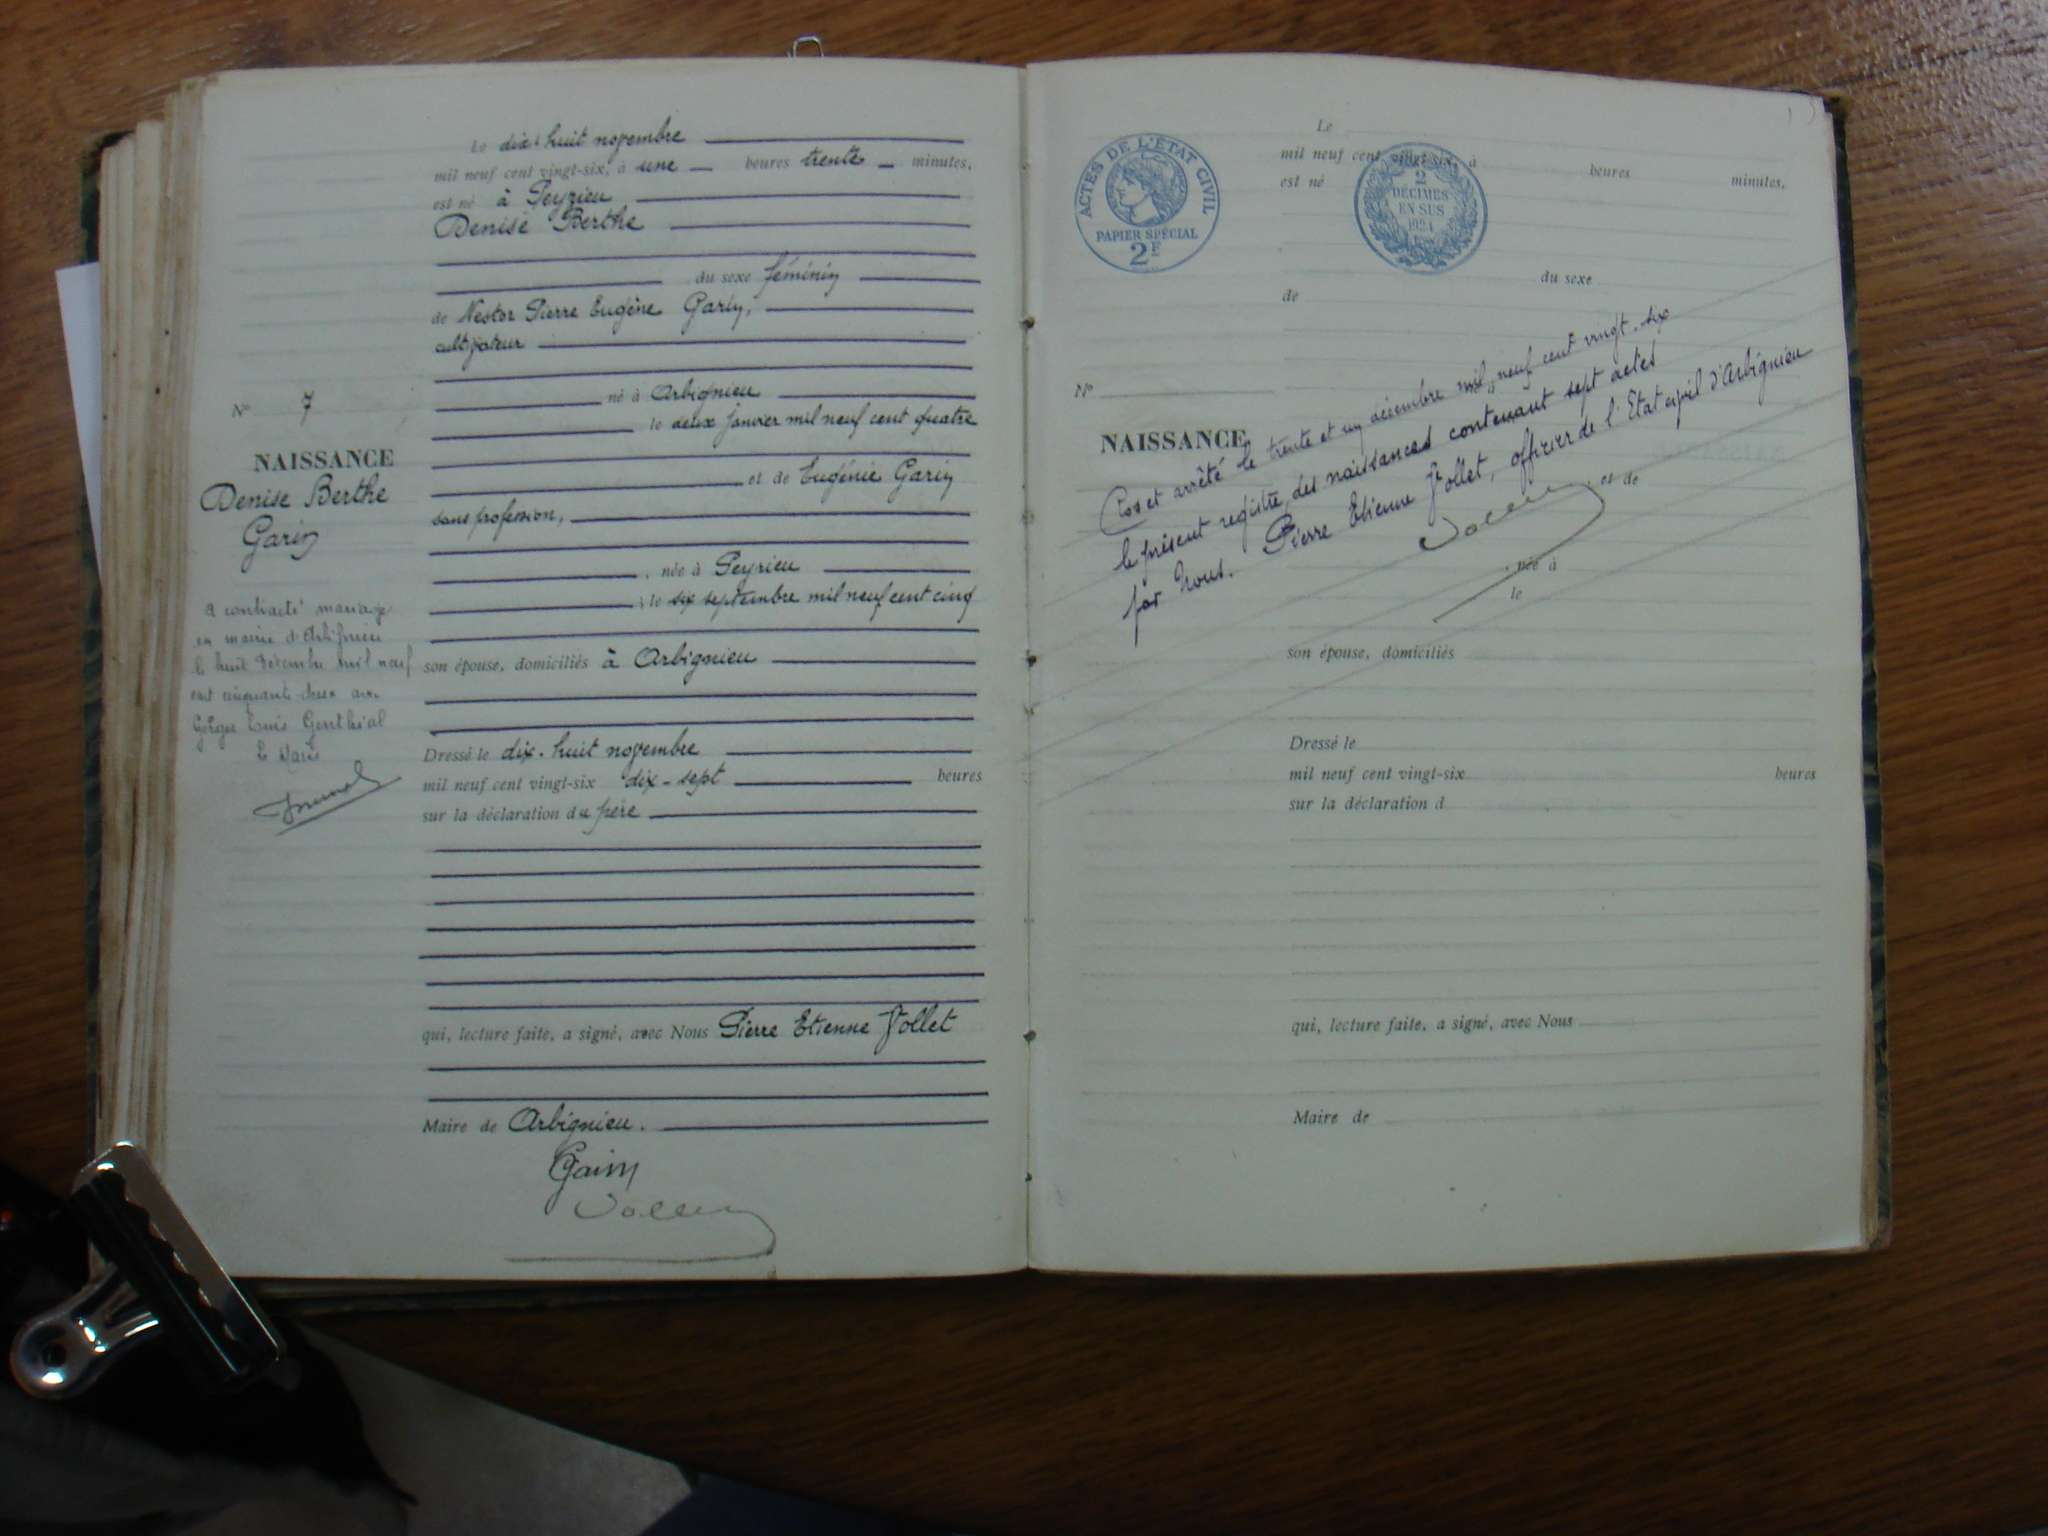 Le dix-huit novembre
mil neuf cent vingt-six, à une heures trente minutes,
est né à Peyrieu
Denise Berthe
du sexe féminin
de Nestor Pierre Eugène Garin,
cultivateur
né à Arbignieu
le deux janvier mil neuf cent quatre
et de Eugénie Garin
sans profession,
, née à Peyrieu
; le six septembre mil neuf cent cinq
son épouse, domiciliés à Arbignieu
Dressé le dix-huit novembre
mil neuf cent vingt-six dix-sept heures
sur la déclaration du père
qui, lecture faite, a signé, avec Nous Pierre Etienne Vollet
Maire de Arbignieu.
Garin
N° 7
NAISSANCE
Denise Berthe
Garin
a contracté mariage
en mairie d'Arbignieu
le huit décembre mil neuf
cent cinquante deux avec
Georges Louis Genthial
Le Maire
ACTES DE L'ÉTAT CIVIL
PAPIER SPÉCIAL
2F
2
DÉCIMES
EN SUS
1924
Le
mil neuf cent vingt-six, à heures minutes,
est né
du sexe
de
N°
NAISSANCE
Clos et arrêté le trente et un décembre mil neuf cent vingt-six
le présent registre des naissances contenant sept actes
par Nous. Pierre Etienne Vollet, officier de l'Etat civil d'Arbignieu
et de
, née à
le
son épouse, domiciliés
Dressé le
mil neuf cent vingt-six heures
sur la déclaration d
qui, lecture faite, a signé, avec Nous
Maire de